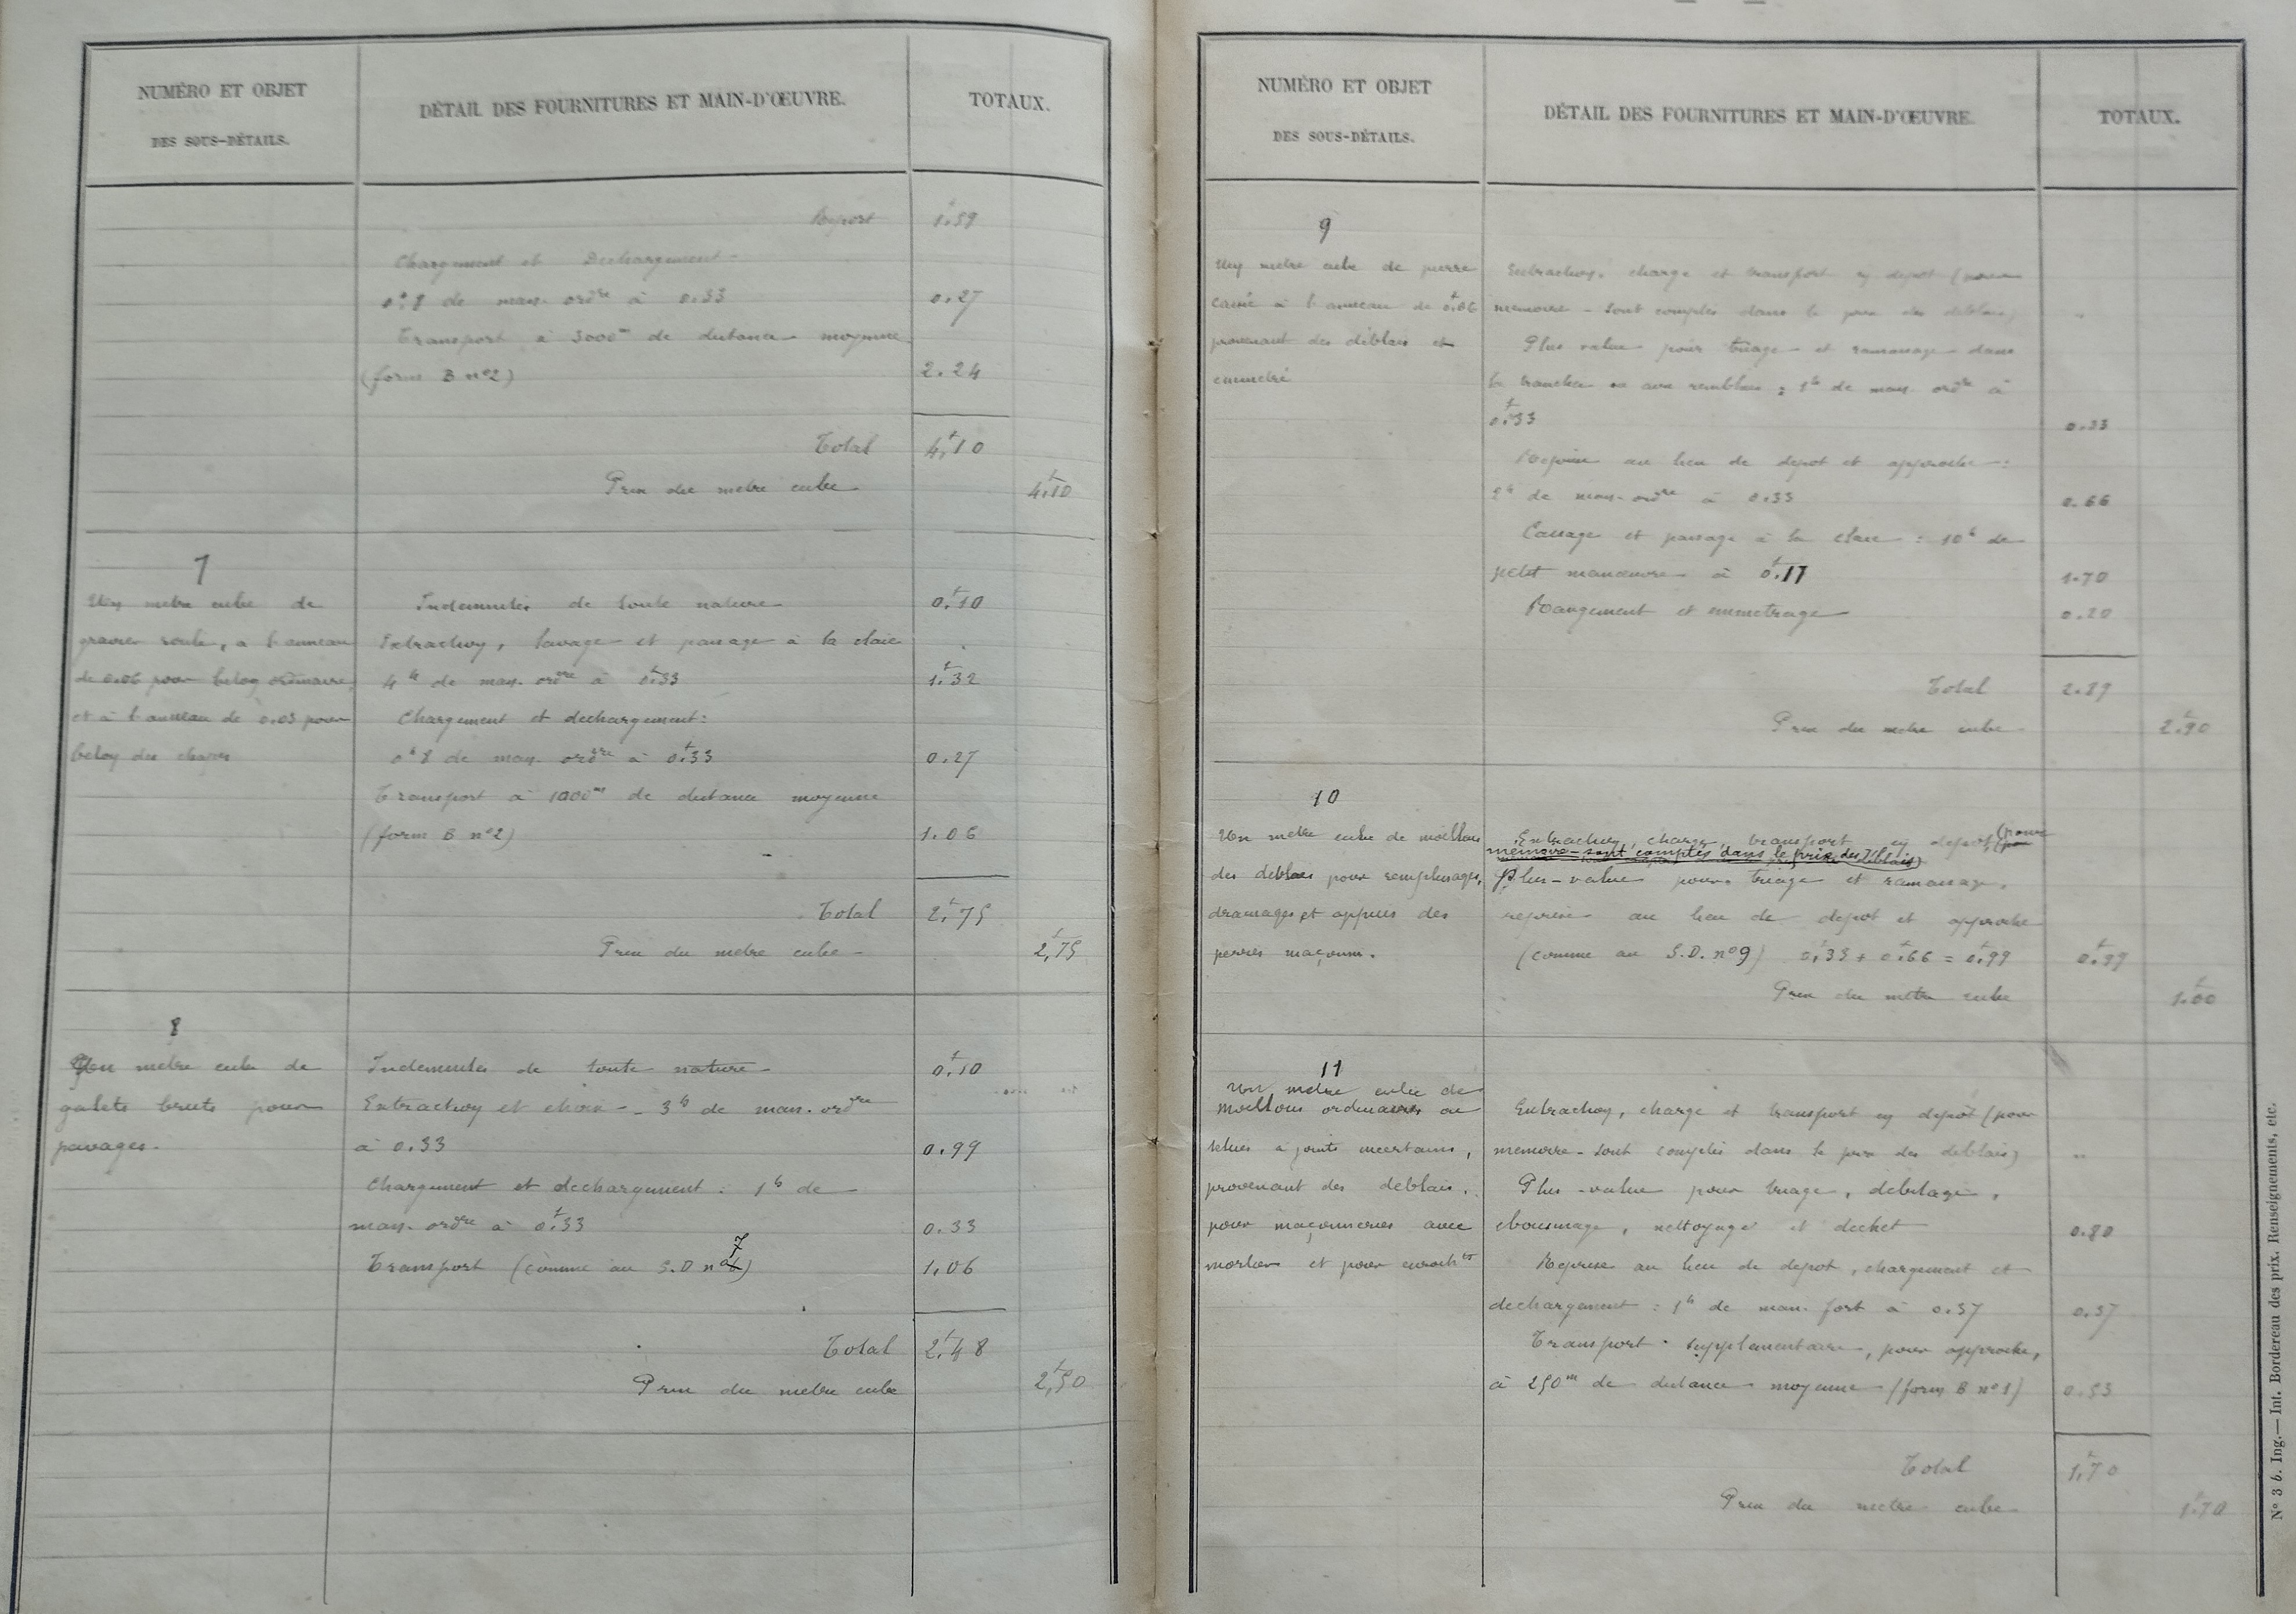 NUMÉRO ET OBJET
DES SOUS-DÉTAILS.
DÉTAIL DES FOURNITURES ET MAIN-D'ŒUVRE.
TOTAUX.
Report 1.59
Chargement et Dechargement
0h8 de man. ordre à 0.33 0.27
Transport à 3000m de distance moyenne
(form B nº2) 2.24
Total 4f,10
Prix du metre cube 4f,10
7
Un metre cube de
gravier roulé, à l'anneau
de 0.06 pour beton ordinaire,
et à l'anneau de 0.03 pour
beton des chapes
Indemnités de toute nature 0f,10
Extraction, lavage et passage à la claie
4h de man. ordre à 0f.33 1f.32
Chargement et dechargement:
0h8 de man. ordre à 0f.33 0.27
Transport à 1000m de distance moyenne
(form B nº2) 1.06
Total 2f,75
Prix du metre cube 2f,75
8
Un metre cube de
galets bruts pour
pavages.
Indemnités de toute nature 0f,10
Extraction et choix - 3h de man. ordre
à 0.33 0.99
Chargement et dechargement : 1h de
man. ordre à 0f.33 0.33
Transport (comme au S.D nº 7) 1.06
Total 2f,48
Prix du metre cube 2f,50
NUMÉRO ET OBJET
DES SOUS-DÉTAILS.
DÉTAIL DES FOURNITURES ET MAIN-D'ŒUVRE.
TOTAUX.
9
Un metre cube de pierre
cassée à l'anneau de 0f.06
provenant des déblais et
emmetré
Extraction, charge et transport en depot (pour
memoire - sont comptés dans le prix des deblais) "
Plus value pour triage et ramassage dans
la tranchée ou aux remblais : 1h de man. ordre à
0f.33 0.33
Reprise au lieu de depot et approche :
2h de man. ordre à 0.33 0.66
Cassage et passage à la claie : 10h de
petit manœuvre à 0f.17 1.70
Rangement et emmetrage 0.20
Total 2.89
Prix du metre cube 2f.90
10
Un metre cube de moellons
des déblais pour remplissages,
drainages et appuis des
perrés maçonn.
Extraction, charge, transport en depot, (pour
memoire - sont comptés dans le prix des déblais)
Plus-value pour triage et ramassage,
reprise au lieu de depot et approche
(comme au S.D. nº9) 0f,33 + 0f.66 = 0f,99 0f.99
Prix du metre cube 1f.00
11
Un metre cube de
moellons ordinaires ou
têtués à joints incertains,
provenant des deblais,
pour maçonneries avec
mortier et pour enrochts
Extraction, charge et transport en depôt (pour
memoire - sont comptés dans le prix des deblais) "
Plus-value pour triage, debitage,
ebousinage, nettoyage et dechet 0.80
Reprise au lieu de depot, chargement et
dechargement : 1h de man. fort à 0.37 0.37
Transport supplementaire, pour approche,
à 250m de distance moyenne (form B nº1) 0.53
Total 1f,70
Prix du metre cube 1f.70
Nº 3 b. Ing.— Int. Bordereau des prix. Renseignements, etc.